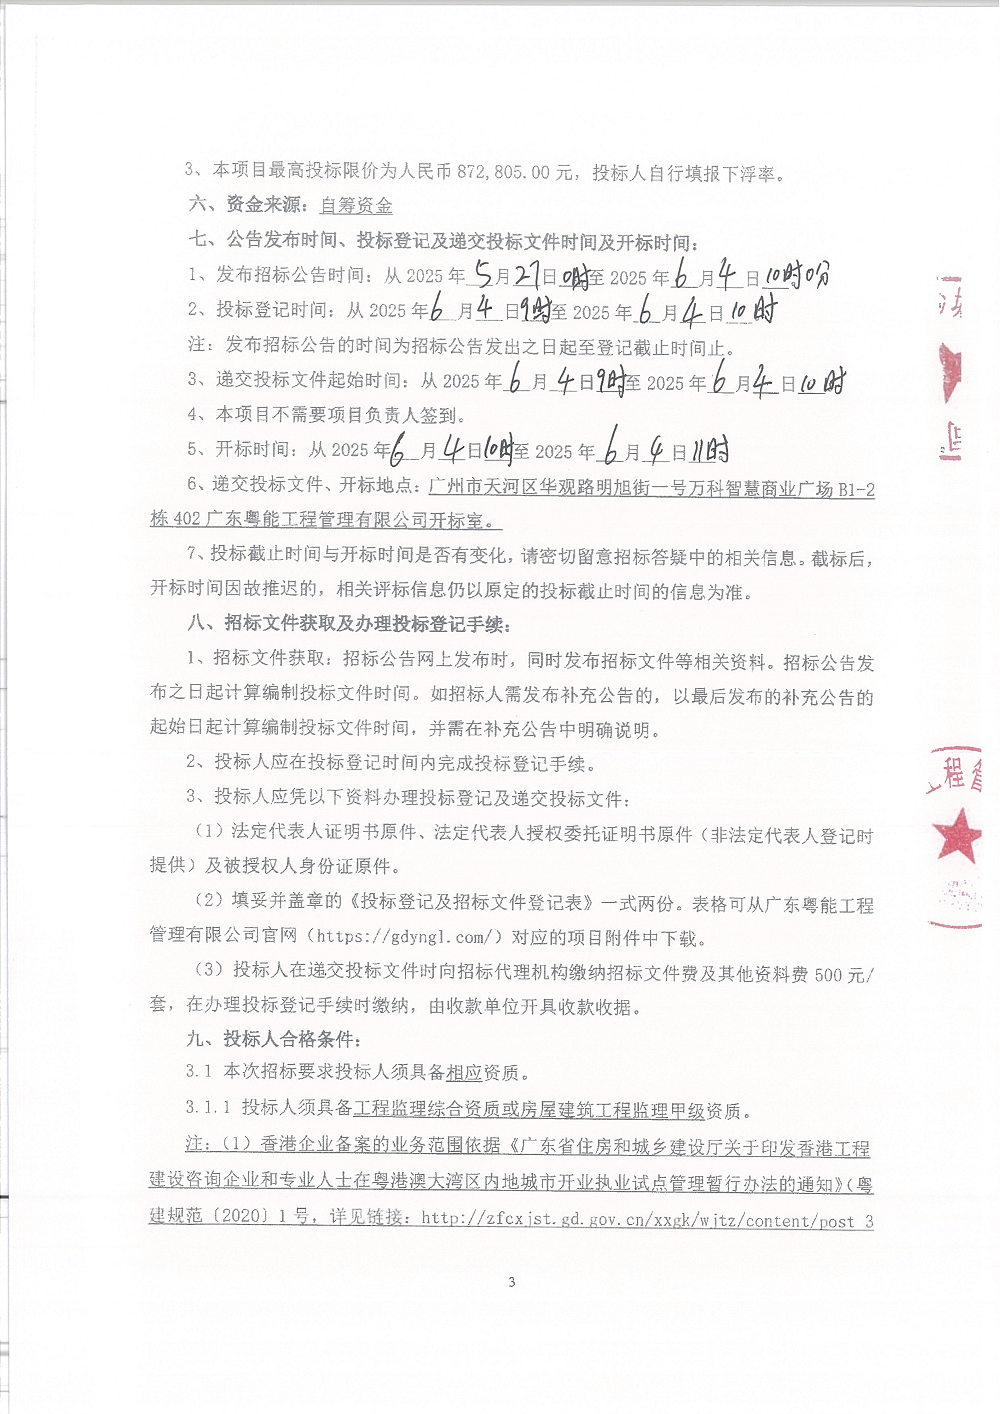 3、本项目最高投标限价为人民币 872,805.00 元，投标人自行填报下浮率。
六、资金来源：自筹资金
七、公告发布时间、投标登记及递交投标文件时间及开标时间：
1、发布招标公告时间：从 2025 年 5 月 27 日 0时至 2025 年 6 月 4 日 10时0分
2、投标登记时间：从 2025 年 6 月 4 日 9时至 2025 年 6 月 4 日 10时
注：发布招标公告的时间为招标公告发出之日起至登记截止时间止。
3、递交投标文件起始时间：从 2025 年 6 月 4 日 9时至 2025 年 6 月 4 日 10时
4、本项目不需要项目负责人签到。
5、开标时间：从 2025 年 6 月 4 日 10时至 2025 年 6 月 4 日 11时
6、递交投标文件、开标地点：广州市天河区华观路明旭街一号万科智慧商业广场 B1-2
栋 402 广东粤能工程管理有限公司开标室。
7、投标截止时间与开标时间是否有变化，请密切留意招标答疑中的相关信息。截标后，
开标时间因故推迟的，相关评标信息仍以原定的投标截止时间的信息为准。
八、招标文件获取及办理投标登记手续：
1、招标文件获取：招标公告网上发布时，同时发布招标文件等相关资料。招标公告发
布之日起计算编制投标文件时间。如招标人需发布补充公告的，以最后发布的补充公告的
起始日起计算编制投标文件时间，并需在补充公告中明确说明。
2、投标人应在投标登记时间内完成投标登记手续。
3、投标人应凭以下资料办理投标登记及递交投标文件：
（1）法定代表人证明书原件、法定代表人授权委托证明书原件（非法定代表人登记时
提供）及被授权人身份证原件。
（2）填妥并盖章的《投标登记及招标文件登记表》一式两份。表格可从广东粤能工程
管理有限公司官网（https://gdyngl.com/）对应的项目附件中下载。
（3）投标人在递交投标文件时向招标代理机构缴纳招标文件费及其他资料费 500 元/
套，在办理投标登记手续时缴纳，由收款单位开具收款收据。
九、投标人合格条件：
3.1 本次招标要求投标人须具备相应资质。
3.1.1 投标人须具备工程监理综合资质或房屋建筑工程监理甲级资质。
注：（1）香港企业备案的业务范围依据《广东省住房和城乡建设厅关于印发香港工程
建设咨询企业和专业人士在粤港澳大湾区内地城市开业执业试点管理暂行办法的通知》（粤
建规范〔2020〕1 号，详见链接：http://zfcxjst.gd.gov.cn/xxgk/wjtz/content/post_3
3
工程管